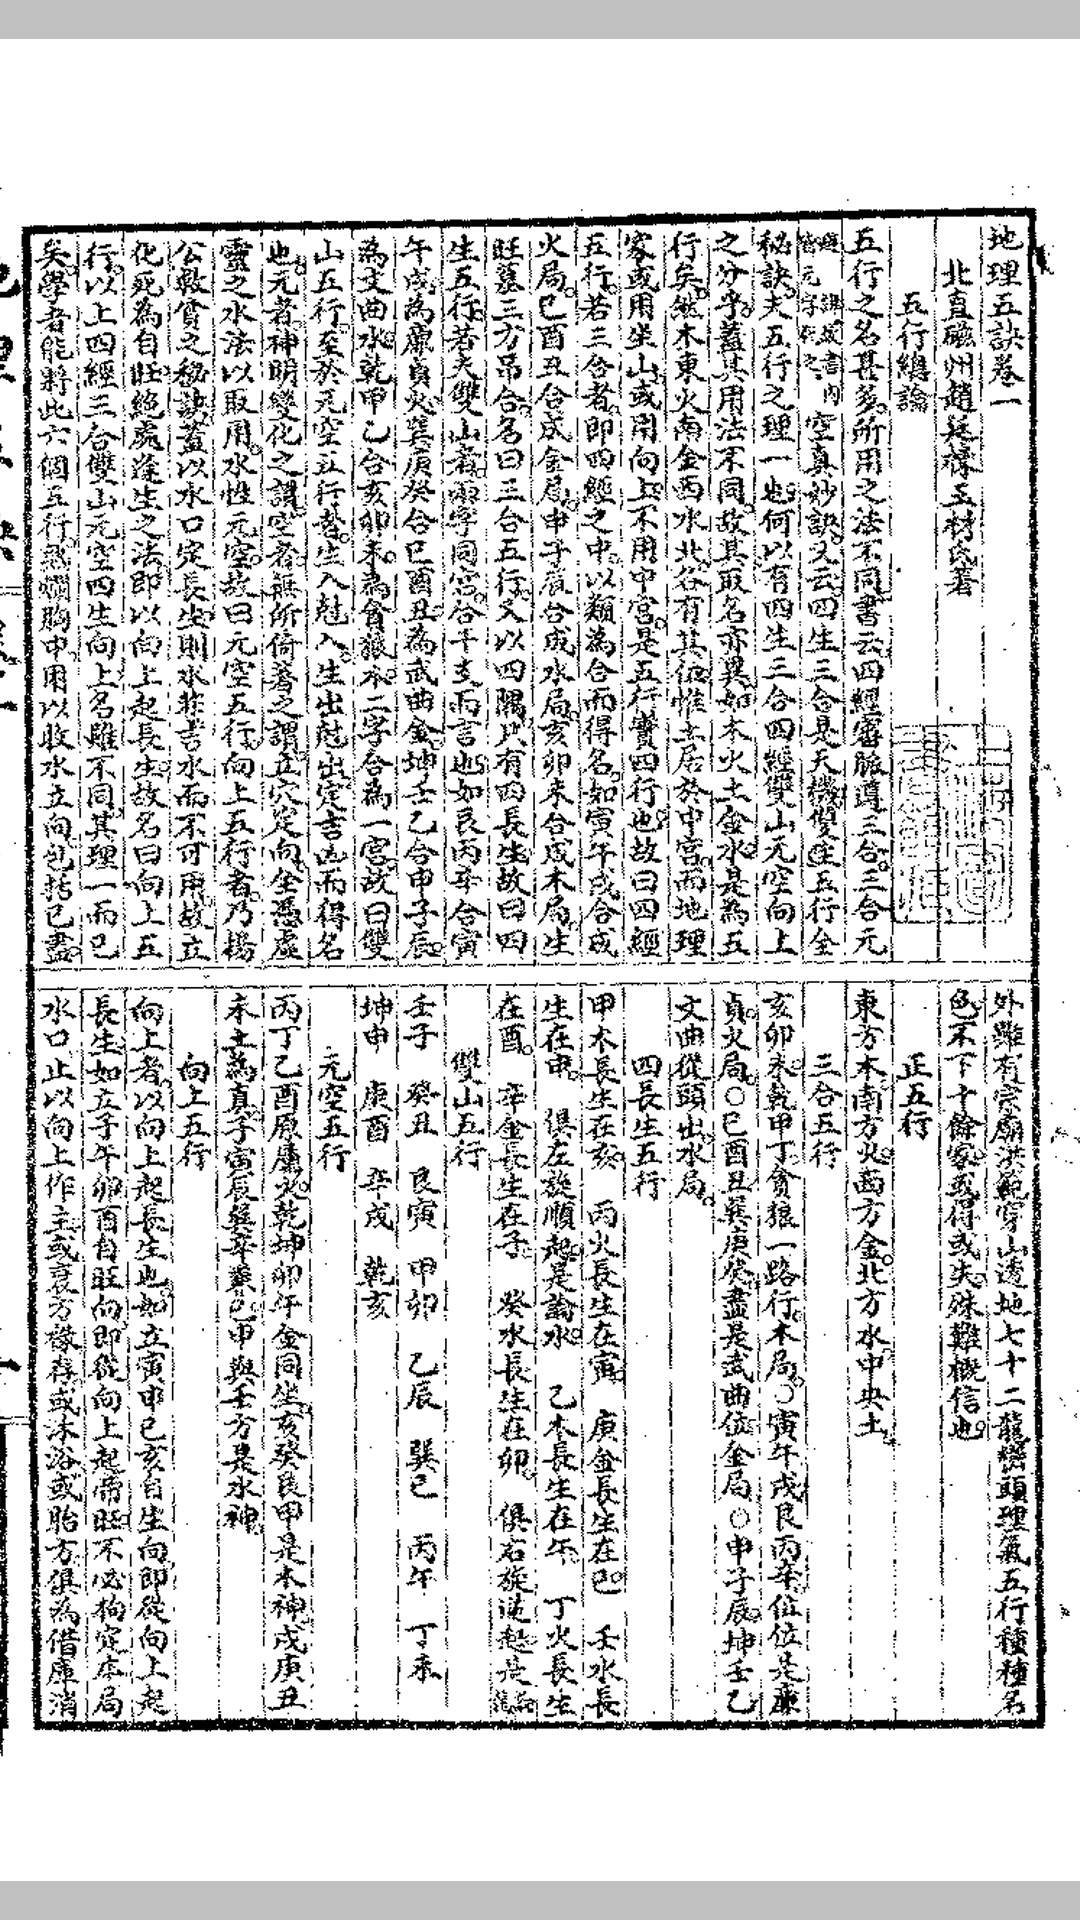 地理五訣卷一
北直磁州趙廷棟玉材氏著
五行總論
五行之名甚多所用之法不同書云四經審脈遵三合三合元
空真妙訣又云四生三合是天機雙山五行全
秘訣夫五行之理一也何以有四生三合四經雙山元空向上
之分乎蓋其用法不同故其取名亦異如木火土金水是為五
行矣然木東火南金西水北各有其位惟土居於中宮而地理
家或用坐山或用向上不用中宮是五行實四行也故曰四經
五行若三合者即四經之中以類為合而得名如寅午戌合成
火局巳酉丑合成金局申子辰合成水局亥卯未合成木局生
旺墓三方吊合名曰三合五行又以四隅只有四長生故曰四
生五行若夫雙山者兩字同宮合干支而言也如艮丙辛合寅
午戌為廉貞火巽庚癸合巳酉丑為武曲金坤壬乙合申子辰
為文曲水乾甲乙合亥卯未為貪狼木二字合為一宮故曰雙
山五行至於元空五行者生入尅入生出尅出定吉凶而得名
也元者神明變化之謂空者無所倚著之謂立穴定向坐憑虛
靈之水法以取用水性元空故曰元空五行向上五行者乃楊
公救貧之秘訣蓋以水口定長生則水非吉水而不可用故立
化死為自旺絕處逢生之法即以向上起長生故名曰向上五
行以上四經三合雙山元空四生向上名雖不同其理一而已
矣學者能將此六個五行熟爛胸中用以收水立向包括已盡
外雖有宗廟洪範穿山透地七十二龍巒頭理氣五行種種名
色不下十餘家或得或失殊難概信也
正五行
東方木南方火西方金北方水中央土
三合五行
亥卯未乾甲丁貪狼一路行木局○寅午戌艮丙辛位位是廉
貞火局○巳酉丑巽庚癸盡是武曲位金局○申子辰坤壬乙
文曲從頭出水局
四長生五行
甲木長生在亥 丙火長生在寅 庚金長生在巳 壬水長
生在申 俱左旋順起是論水 乙木長生在午 丁火長生
在酉 辛金長生在子 癸水長生在卯 俱右旋逆起是
雙山五行
壬子 癸丑 艮寅 甲卯 乙辰 巽巳 丙午 丁未
坤申 庚酉 辛戌 乾亥
元空五行
丙丁乙酉原屬火乾坤卯午金同坐亥癸艮甲是木神戌庚丑
未土為真子寅辰巽辛兼巳申與壬方是水神
向上五行
向上者以向上起長生也如立寅申巳亥自生向即從向上起
長生如立子午卯酉自旺向即從向上起帝旺不必拘定本局
水口止以向上作主或衰方祿存或沐浴或胎方俱為借庫消